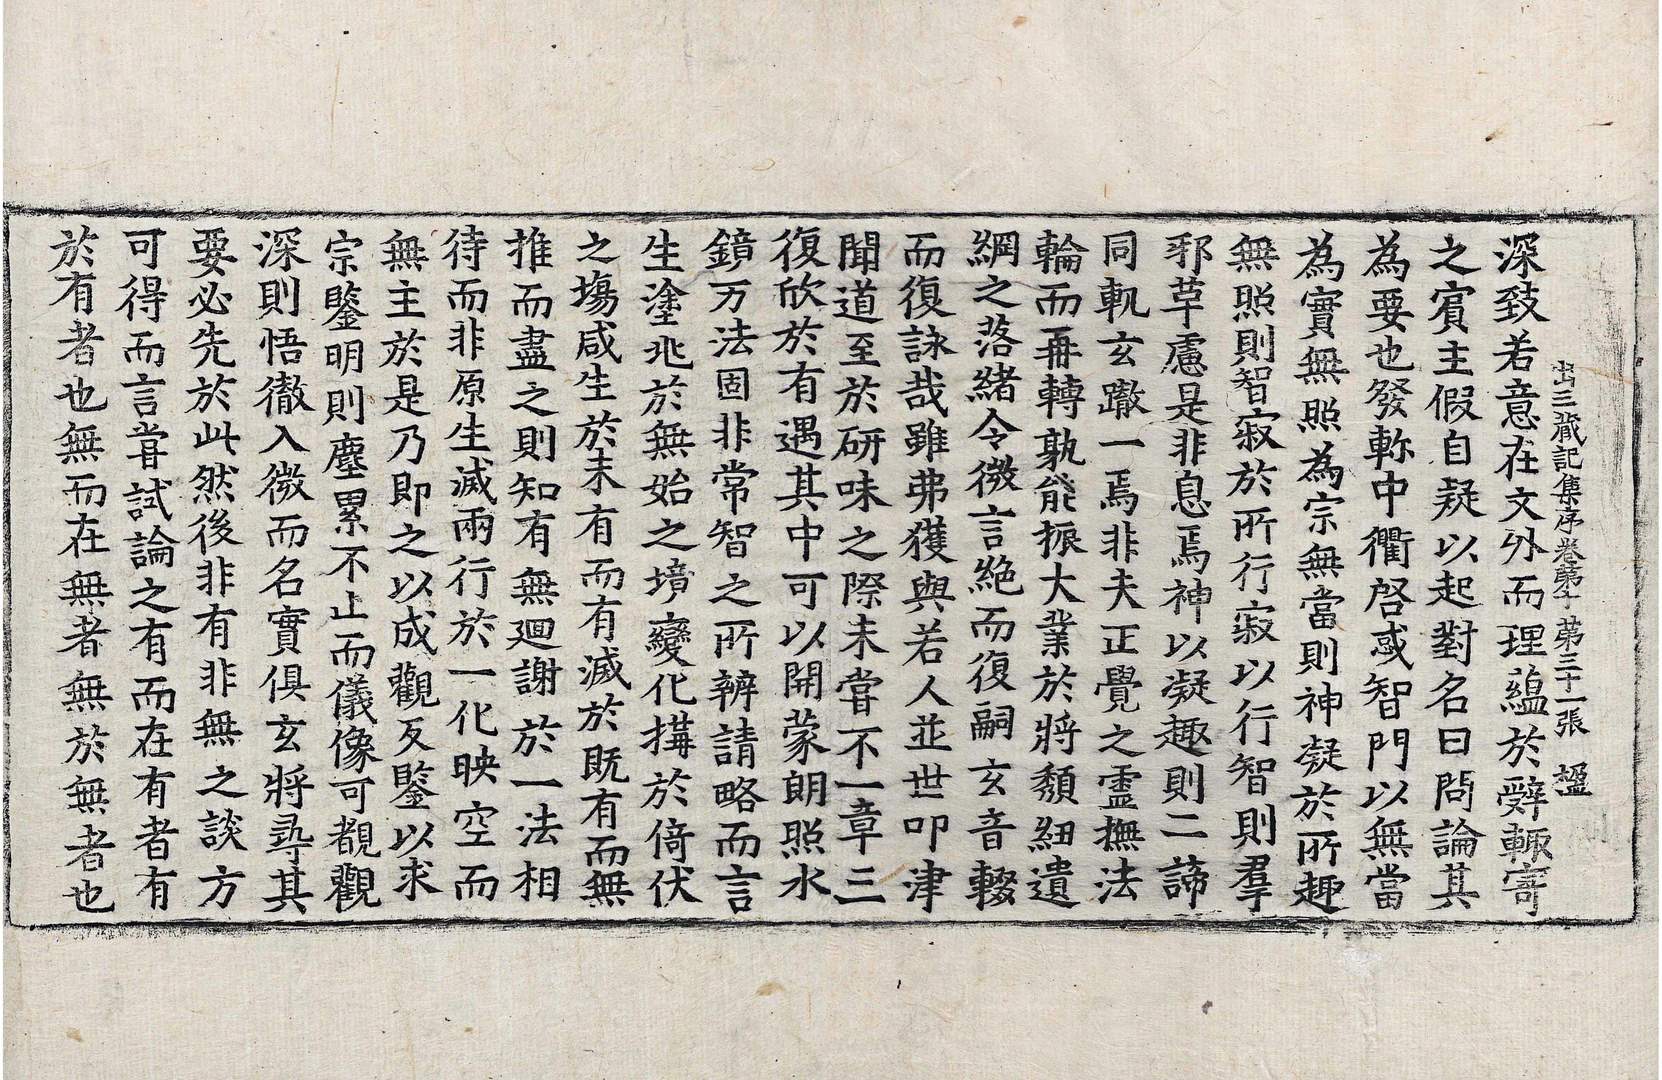 出三藏記集序卷第十 第三十一張 楹
深致若意在文外而理蘊於辭輙寄
之賔主假自疑以起對名曰問論其
為要也發軫中衢啓惑智門以無當
為實無照為宗無當則神凝於所趣
無照則智寂於所行寂以行智則羣
邪革慮是非息焉神以凝趣則二諦
同軌玄轍一焉非夫正覺之靈撫法
輪而再轉孰能振大業於將頹紐遺
綱之落緒令微言絶而復嗣玄音輟
而復詠哉雖弗獲與若人並世叩津
聞道至於研味之際未甞不一章三
復欣於有遇其中可以開蒙朗照水
鏡万法固非常智之所辨請略而言
生塗兆於無始之境變化搆於倚伏
之塲咸生於未有而有滅於既有而無
推而盡之則知有無廻謝於一法相
待而非原生滅兩行於一化映空而
無主於是乃即之以成觀反鑒以求
宗鑒明則塵累不止而儀像可覩觀
深則悟徹入微而名實俱玄將尋其
要必先於此然後非有非無之談方
可得而言甞試論之有而在有者有
於有者也無而在無者無於無者也